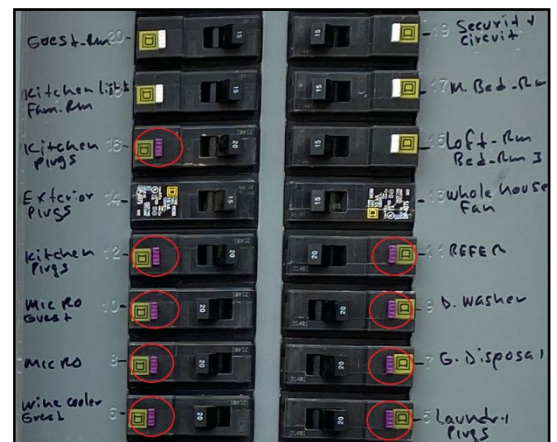 Guest-Rm 20
Kitchen light
Fam. Rm
Kitchen 16
Plugs
Exterior 14
Plugs
Kitchen 12
Plugs
Micro 10
Guest
Micro 8
Wine cooler 6
Guest
15
15
20
15
20
20
20
20
15
15
15
15
20
20
20
20
19 Security
Circuit
17 M. Bed-Rm
15 Loft-Rm
Bed-Rm 3
13 Whole House
Fan
11 REFER
9 D. Washer
7 G. Disposal
5 Laundry
Plugs